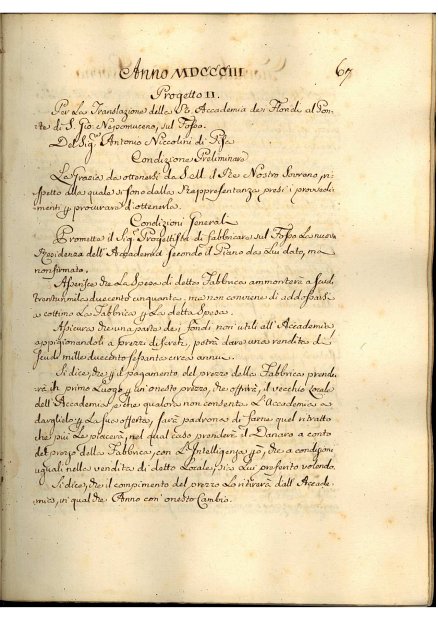 Anno MDCCCIII 67
Progetto II.
Per La Translazione della Accademia dei Floridi al Pon-
te di S. Gio: Nepomuceno, sul Fosso.
Del Sig. Antonio Niccolini di Pisa
Condizione Preliminare
La Grazia da ottenersi da S. M. il Re Nostro Sovrano, ri-
spetto alla quale si sono dalla Rappresentanza presi i provvedi-
menti procurare d'ottenerla.
Condizioni Generali
Promette il Sig. Progettista di fabbricare sul Fosso La nuova
Residenza dell'Accademia secondo il Piano da Lui dato, ma
non firmato.
che La Spesa di detta Fabbrica ammonterà a scudi
trentunmila duecento cinquanta, ma non conviene di addossarsi
a cottimo La Fabbrica La detta Spesa.
Assicura che una parte dei fondi non utili all'Accademia
appigionandoli a prezzi discreti, potrà dare una rendita di
scudi mille duecento sessanta circa annui.
Si dice, che il pagamento del prezzo della Fabbrica prende-
rà in primo Luogo un onesto prezzo, che offrirà, il vecchio Locale
dell'Accademia, e che qualora non consenta L'Accademia a
darglielo La sua offerta, sarà padrona di farne quel ritratto
che più Le piacerà, nel qual caso prenderà il Danaro a conto
del prezzo della Fabbrica, con L'Intelligenza però, che a condizioni
uguali nella vendita di detto Locale, sia Lui preferito volendo.
Si dice, che il compimento del prezzo Lo ritirerà dall'Accade-
mia, in qualche Anno con onesto Cambio.